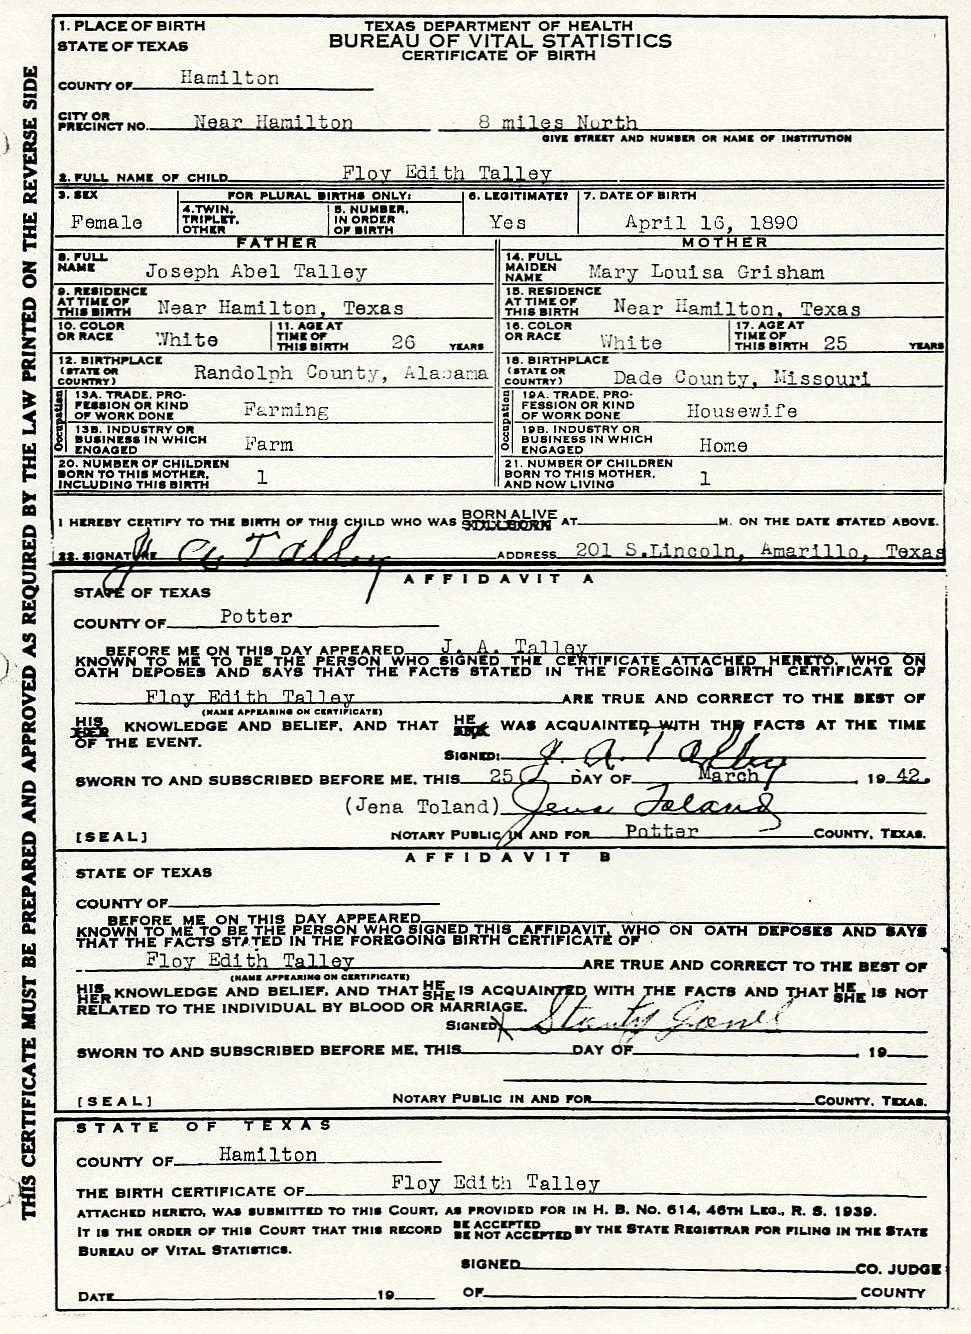 THIS CERTIFICATE MUST BE PREPARED AND APPROVED AS REQUIRED BY THE LAW PRINTED ON THE REVERSE SIDE
TEXAS DEPARTMENT OF HEALTH
BUREAU OF VITAL STATISTICS
CERTIFICATE OF BIRTH
1. PLACE OF BIRTH
STATE OF TEXAS
COUNTY OF Hamilton
CITY OR PRECINCT NO. Near Hamilton 8 miles North
GIVE STREET AND NUMBER OR NAME OF INSTITUTION
2. FULL NAME OF CHILD Floy Edith Talley
3. SEX Female
FOR PLURAL BIRTHS ONLY:
4. TWIN, TRIPLET, OTHER
5. NUMBER, IN ORDER OF BIRTH
6. LEGITIMATE? Yes
7. DATE OF BIRTH April 16, 1890
FATHER
8. FULL NAME Joseph Abel Talley
9. RESIDENCE AT TIME OF THIS BIRTH Near Hamilton, Texas
10. COLOR OR RACE White
11. AGE AT TIME OF THIS BIRTH 26 YEARS
12. BIRTHPLACE (STATE OR COUNTRY) Randolph County, Alabama
Occupation
13A. TRADE, PROFESSION OR KIND OF WORK DONE Farming
13B. INDUSTRY OR BUSINESS IN WHICH ENGAGED Farm
20. NUMBER OF CHILDREN BORN TO THIS MOTHER, INCLUDING THIS BIRTH 1
MOTHER
14. FULL MAIDEN NAME Mary Louisa Grisham
15. RESIDENCE AT TIME OF THIS BIRTH Near Hamilton, Texas
16. COLOR OR RACE White
17. AGE AT TIME OF THIS BIRTH 25 YEARS
18. BIRTHPLACE (STATE OR COUNTRY) Dade County, Missouri
Occupation
19A. TRADE, PROFESSION OR KIND OF WORK DONE Housewife
19B. INDUSTRY OR BUSINESS IN WHICH ENGAGED Home
21. NUMBER OF CHILDREN BORN TO THIS MOTHER, AND NOW LIVING 1
I HEREBY CERTIFY TO THE BIRTH OF THIS CHILD WHO WAS BORN ALIVE STILLBORN AT M. ON THE DATE STATED ABOVE.
22. SIGNATURE J A Talley ADDRESS 201 S.Lincoln, Amarillo, Texas
AFFIDAVIT A
STATE OF TEXAS
COUNTY OF Potter
BEFORE ME ON THIS DAY APPEARED J. A. Talley
KNOWN TO ME TO BE THE PERSON WHO SIGNED THE CERTIFICATE ATTACHED HERETO, WHO ON
OATH DEPOSES AND SAYS THAT THE FACTS STATED IN THE FOREGOING BIRTH CERTIFICATE OF
Floy Edith Talley ARE TRUE AND CORRECT TO THE BEST OF
(NAME APPEARING ON CERTIFICATE)
HIS HER KNOWLEDGE AND BELIEF, AND THAT HE SHE WAS ACQUAINTED WITH THE FACTS AT THE TIME
OF THE EVENT.
SIGNED: J. A. Talley
SWORN TO AND SUBSCRIBED BEFORE ME, THIS 25 DAY OF March, 19 42.
(Jena Toland) Jena Toland
[SEAL] NOTARY PUBLIC IN AND FOR Potter COUNTY, TEXAS.
AFFIDAVIT B
STATE OF TEXAS
COUNTY OF
BEFORE ME ON THIS DAY APPEARED
KNOWN TO ME TO BE THE PERSON WHO SIGNED THIS AFFIDAVIT, WHO ON OATH DEPOSES AND SAYS
THAT THE FACTS STATED IN THE FOREGOING BIRTH CERTIFICATE OF
Floy Edith Talley ARE TRUE AND CORRECT TO THE BEST OF
(NAME APPEARING ON CERTIFICATE)
HIS HER KNOWLEDGE AND BELIEF, AND THAT HE SHE IS ACQUAINTED WITH THE FACTS AND THAT HE SHE IS NOT
RELATED TO THE INDIVIDUAL BY BLOOD OR MARRIAGE.
SIGNED X
SWORN TO AND SUBSCRIBED BEFORE ME, THIS DAY OF, 19
[SEAL] NOTARY PUBLIC IN AND FOR COUNTY, TEXAS.
STATE OF TEXAS
COUNTY OF Hamilton
THE BIRTH CERTIFICATE OF Floy Edith Talley
ATTACHED HERETO, WAS SUBMITTED TO THIS COURT, AS PROVIDED FOR IN H. B. NO. 614, 46TH LEG., R. S. 1939.
IT IS THE ORDER OF THIS COURT THAT THIS RECORD BE ACCEPTED BE NOT ACCEPTED BY THE STATE REGISTRAR FOR FILING IN THE STATE
BUREAU OF VITAL STATISTICS.
SIGNED CO. JUDGE
DATE 19 OF COUNTY